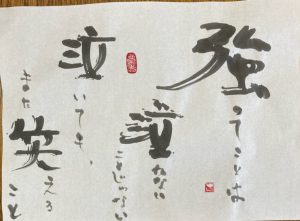 強うてことは
泣かないことじゃない
泣いても、
また笑えること